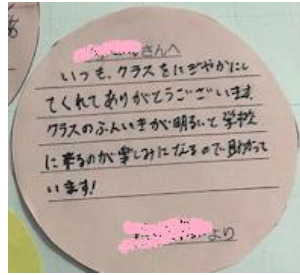 さんへ
いつも、クラスをにぎやかにし
てくれてありがとうございます。
クラスのふんいきが明るいと学校
に来るのが楽しみになるので助かって
います!
より